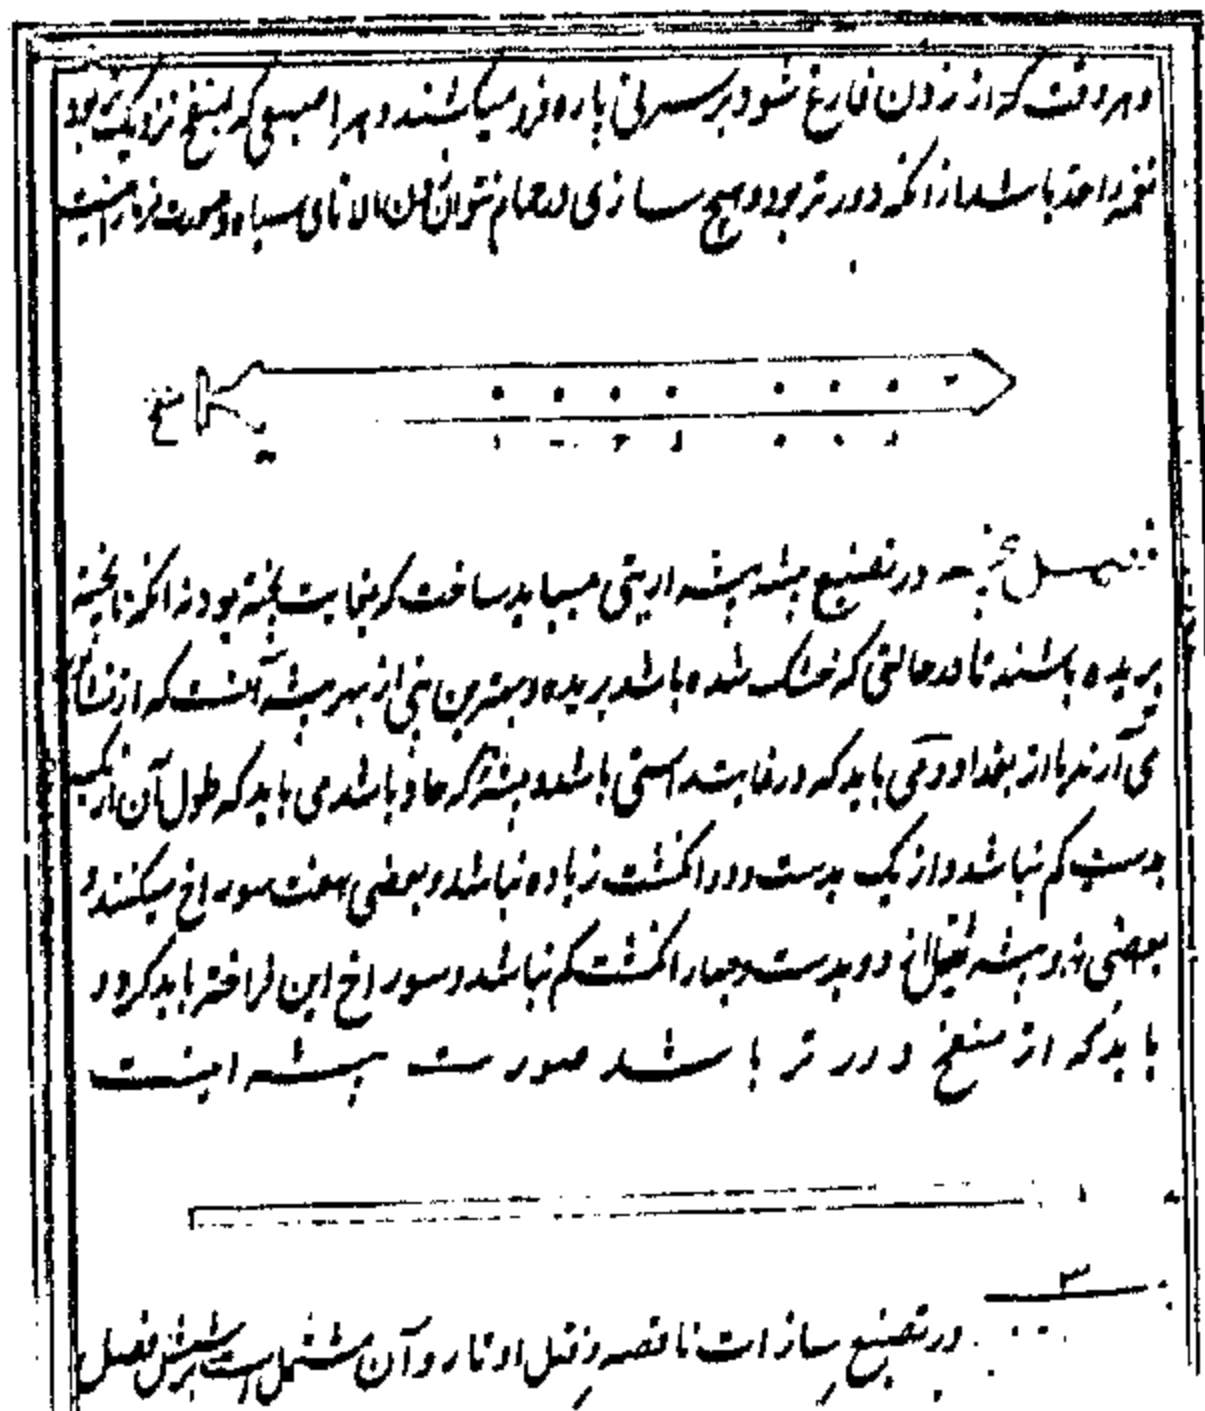 و هر وقت که از زدن فارغ شود بر سر نی پاره فرو میکشند و هر اصبعی که بمنفخ نزدیک تر بود
نغمه احد باشد از انکه دورتر بود و هیچ سازی در حمام نتوان زدن الا نای سیاه و صورت نی مزمار اینست
منفخ
فصل پنجم در تصنیع پیشه پیشه از نیی میباید ساخت که بغایت پخته بود نه انکه ناپخته
بریده باشند تا در حالتی که خشک شده باشد بریده و بهترین نی از بهر پیشه آنست که از
می آرند یا از بغداد و نی باید که در غایت راستی باشد و پیشه اگر حاد باشد می باید که طول آن از یک
بدست کم نباشد و از یک بدست و دو انکشت زیاده نباشد و بعضی هفت سوراخ میکنند و
بعضی نه و پیشه ثقیل از دو بدست و چهار انکشت کم نباشد و سوراخ این فراختر باید کرد و
باید که از منفخ دورتر باشد صورت پیشه اینست
۳
در تصنیع سازات ناقصه ذفتل اوتار و آن مشتمل است بر شش فصل